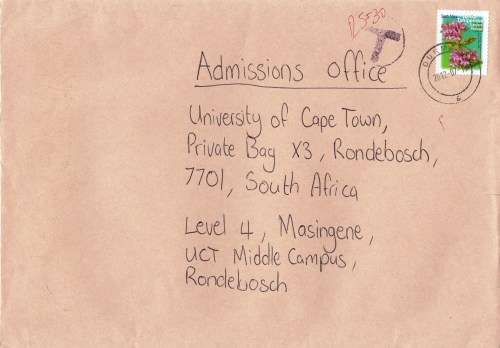 R5F30
T
Admissions Office
University of Cape Town,
Private Bag X3, Rondebosch,
7701, South Africa
Level 4, Masingene,
UCT Middle Campus,
Rondebosch